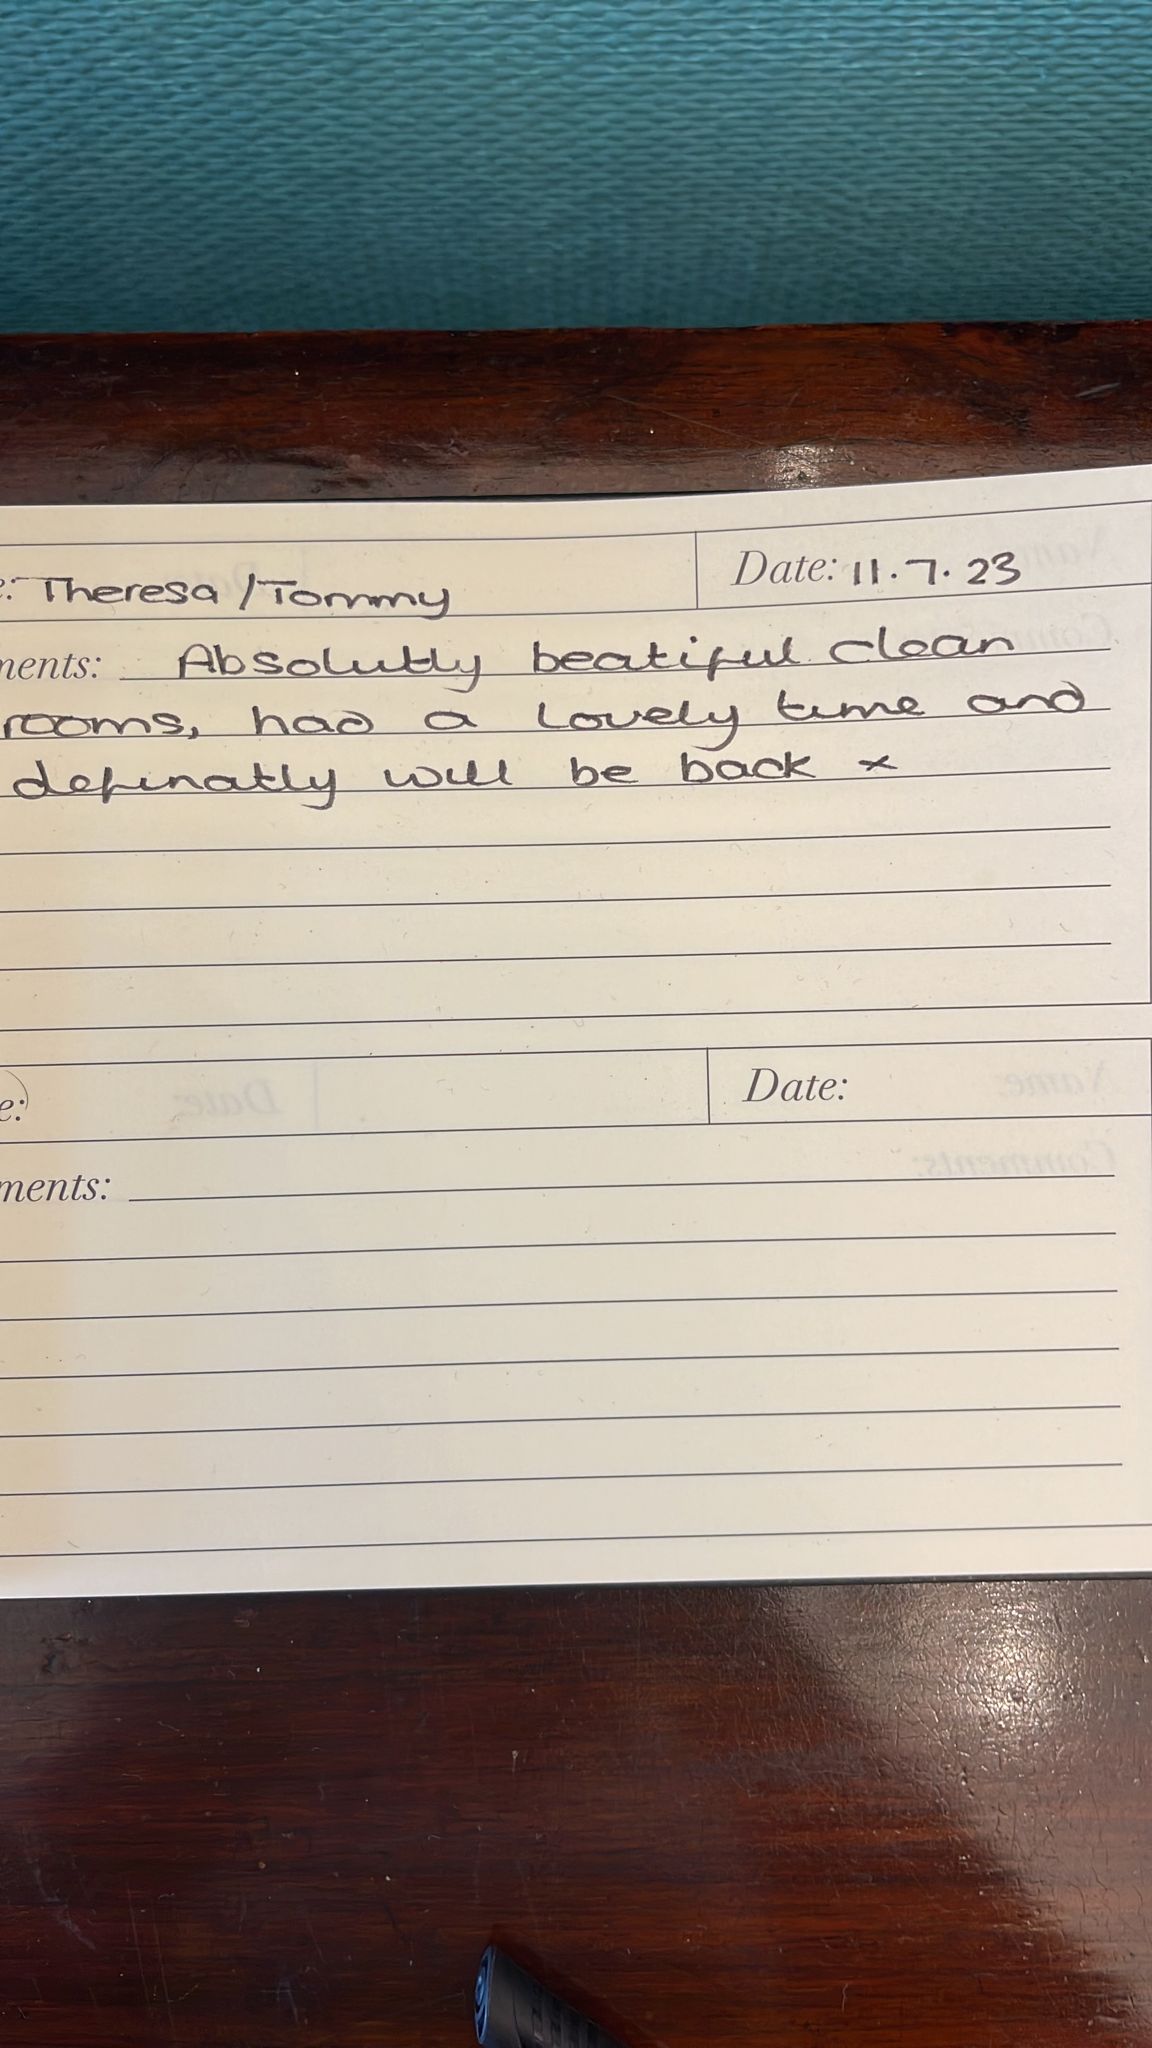 e: Theresa / Tommy Date: 11.7.23
ments: Absolutly beatiful clean
rooms, had a lovely time and
definatly will be back x
e: Date:
ments: